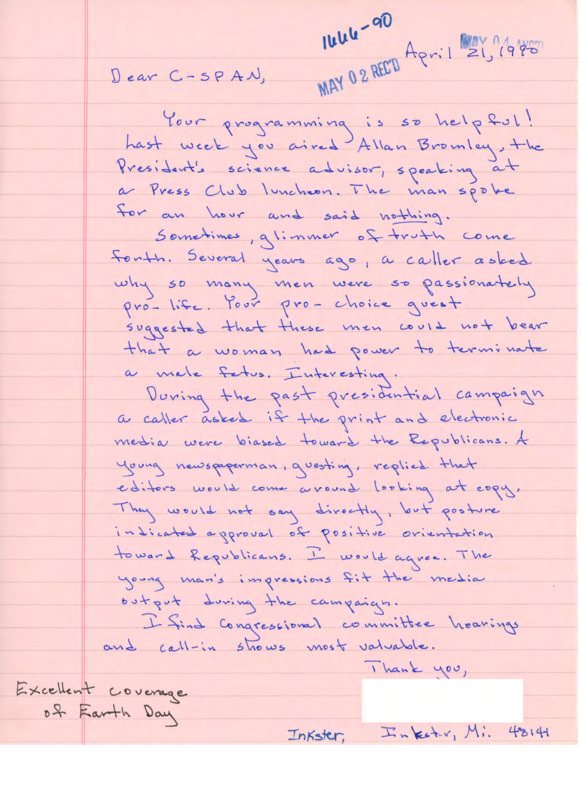 1666-90
MAY 01 REC'D
MAY 02 REC'D
April 21, 1990
Dear C-SPAN,
Your programming is so helpful!
Last week you aired Allan Bromley, the
President's science advisor, speaking at
a Press Club luncheon. The man spoke
for an hour and said nothing.
Sometimes, glimmer of truth come
forth. Several years ago, a caller asked
why so many men were so passionately
pro-life. Your pro-choice guest
suggested that these men could not bear
that a woman had power to terminate
a male fetus. Interesting.
During the past presidential campaign
a caller asked if the print and electronic
media were biased toward the Republicans. A
young newspaperman, guesting, replied that
editors would come around looking at copy.
They would not say directly, but posture
indicated approval of positive orientation
toward Republicans. I would agree. The
young man's impressions fit the media
output during the campaign.
I find Congressional committee hearings
and call-in shows most valuable.
Thank you,
Excellent coverage
of Earth Day
Inkster, Inkster, Mi. 48141